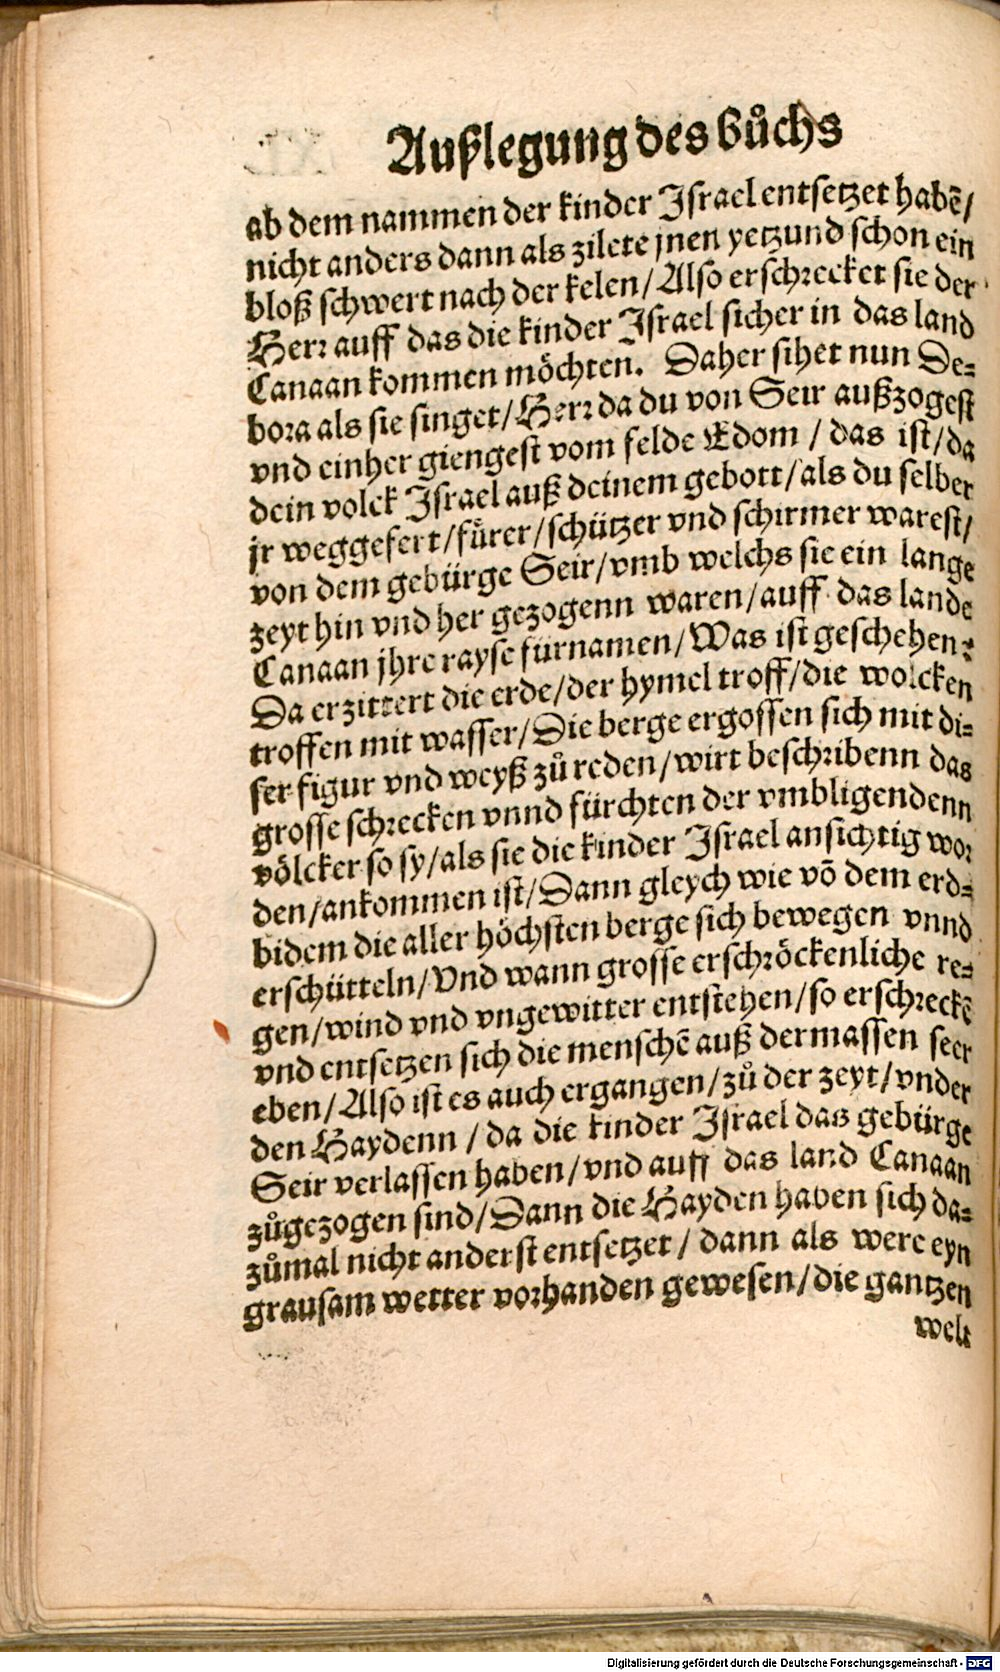 Außlegung des Bůchs
ab dem nammen der kinder Israel entsetzet habē/
nicht anders dann als zilete jnen yetzund schon ein
bloß schwert nach der kelen/Also erschrecket sie der
Herr auff das die kinder Israel sicher in das land
Canaan kommen möchten. Daher sihet nun De-
bora als sie singet/Herr da du von Seir außzogest
vnd einher giengest vom felde Edom / das ist/da
dein volck Israel auß deinem gebott/als du selber
jr weggefert/fůrer/schützer vnd schirmer warest/
von dem gebürge Seir/vmb welchs sie ein lange
zeyt hin vnd her gezogenn waren/auff das lande
Canaan jhre rayse fürnamen/Was ist geschehen?
Da erzittert die erde/der hymel troff/die wolcken
troffen mit wasser/Die berge ergossen sich mit di-
ser figur vnd weyß zů reden/wirt beschribenn das
grosse schrecken vnnd fürchten der vmbligendenn
völcker so sy/als sie die kinder Israel ansichtig wor
den/ankommen ist/Dann gleych wie vō dem erd-
bidem die aller höchsten berge sich bewegen vnnd
erschütteln/Vnd wann grosse erschröckenliche re-
gen/wind vnd vngewitter entstehen/so erschreckē
vnd entsetzen sich die menschē auß dermassen seer
eben/Also ist es auch ergangen/zů der zeyt/vnder
den Haydenn / da die kinder Israel das gebürge
Seir verlassen haben/vnd auff das land Canaan
zůgezogen sind/Dann die Hayden haben sich da-
zůmal nicht anderst entsetzet / dann als were eyn
grausam wetter vorhanden gewesen/die gantzen
welt
Digitalisierung gefördert durch die Deutsche Forschungsgemeinschaft - DFG